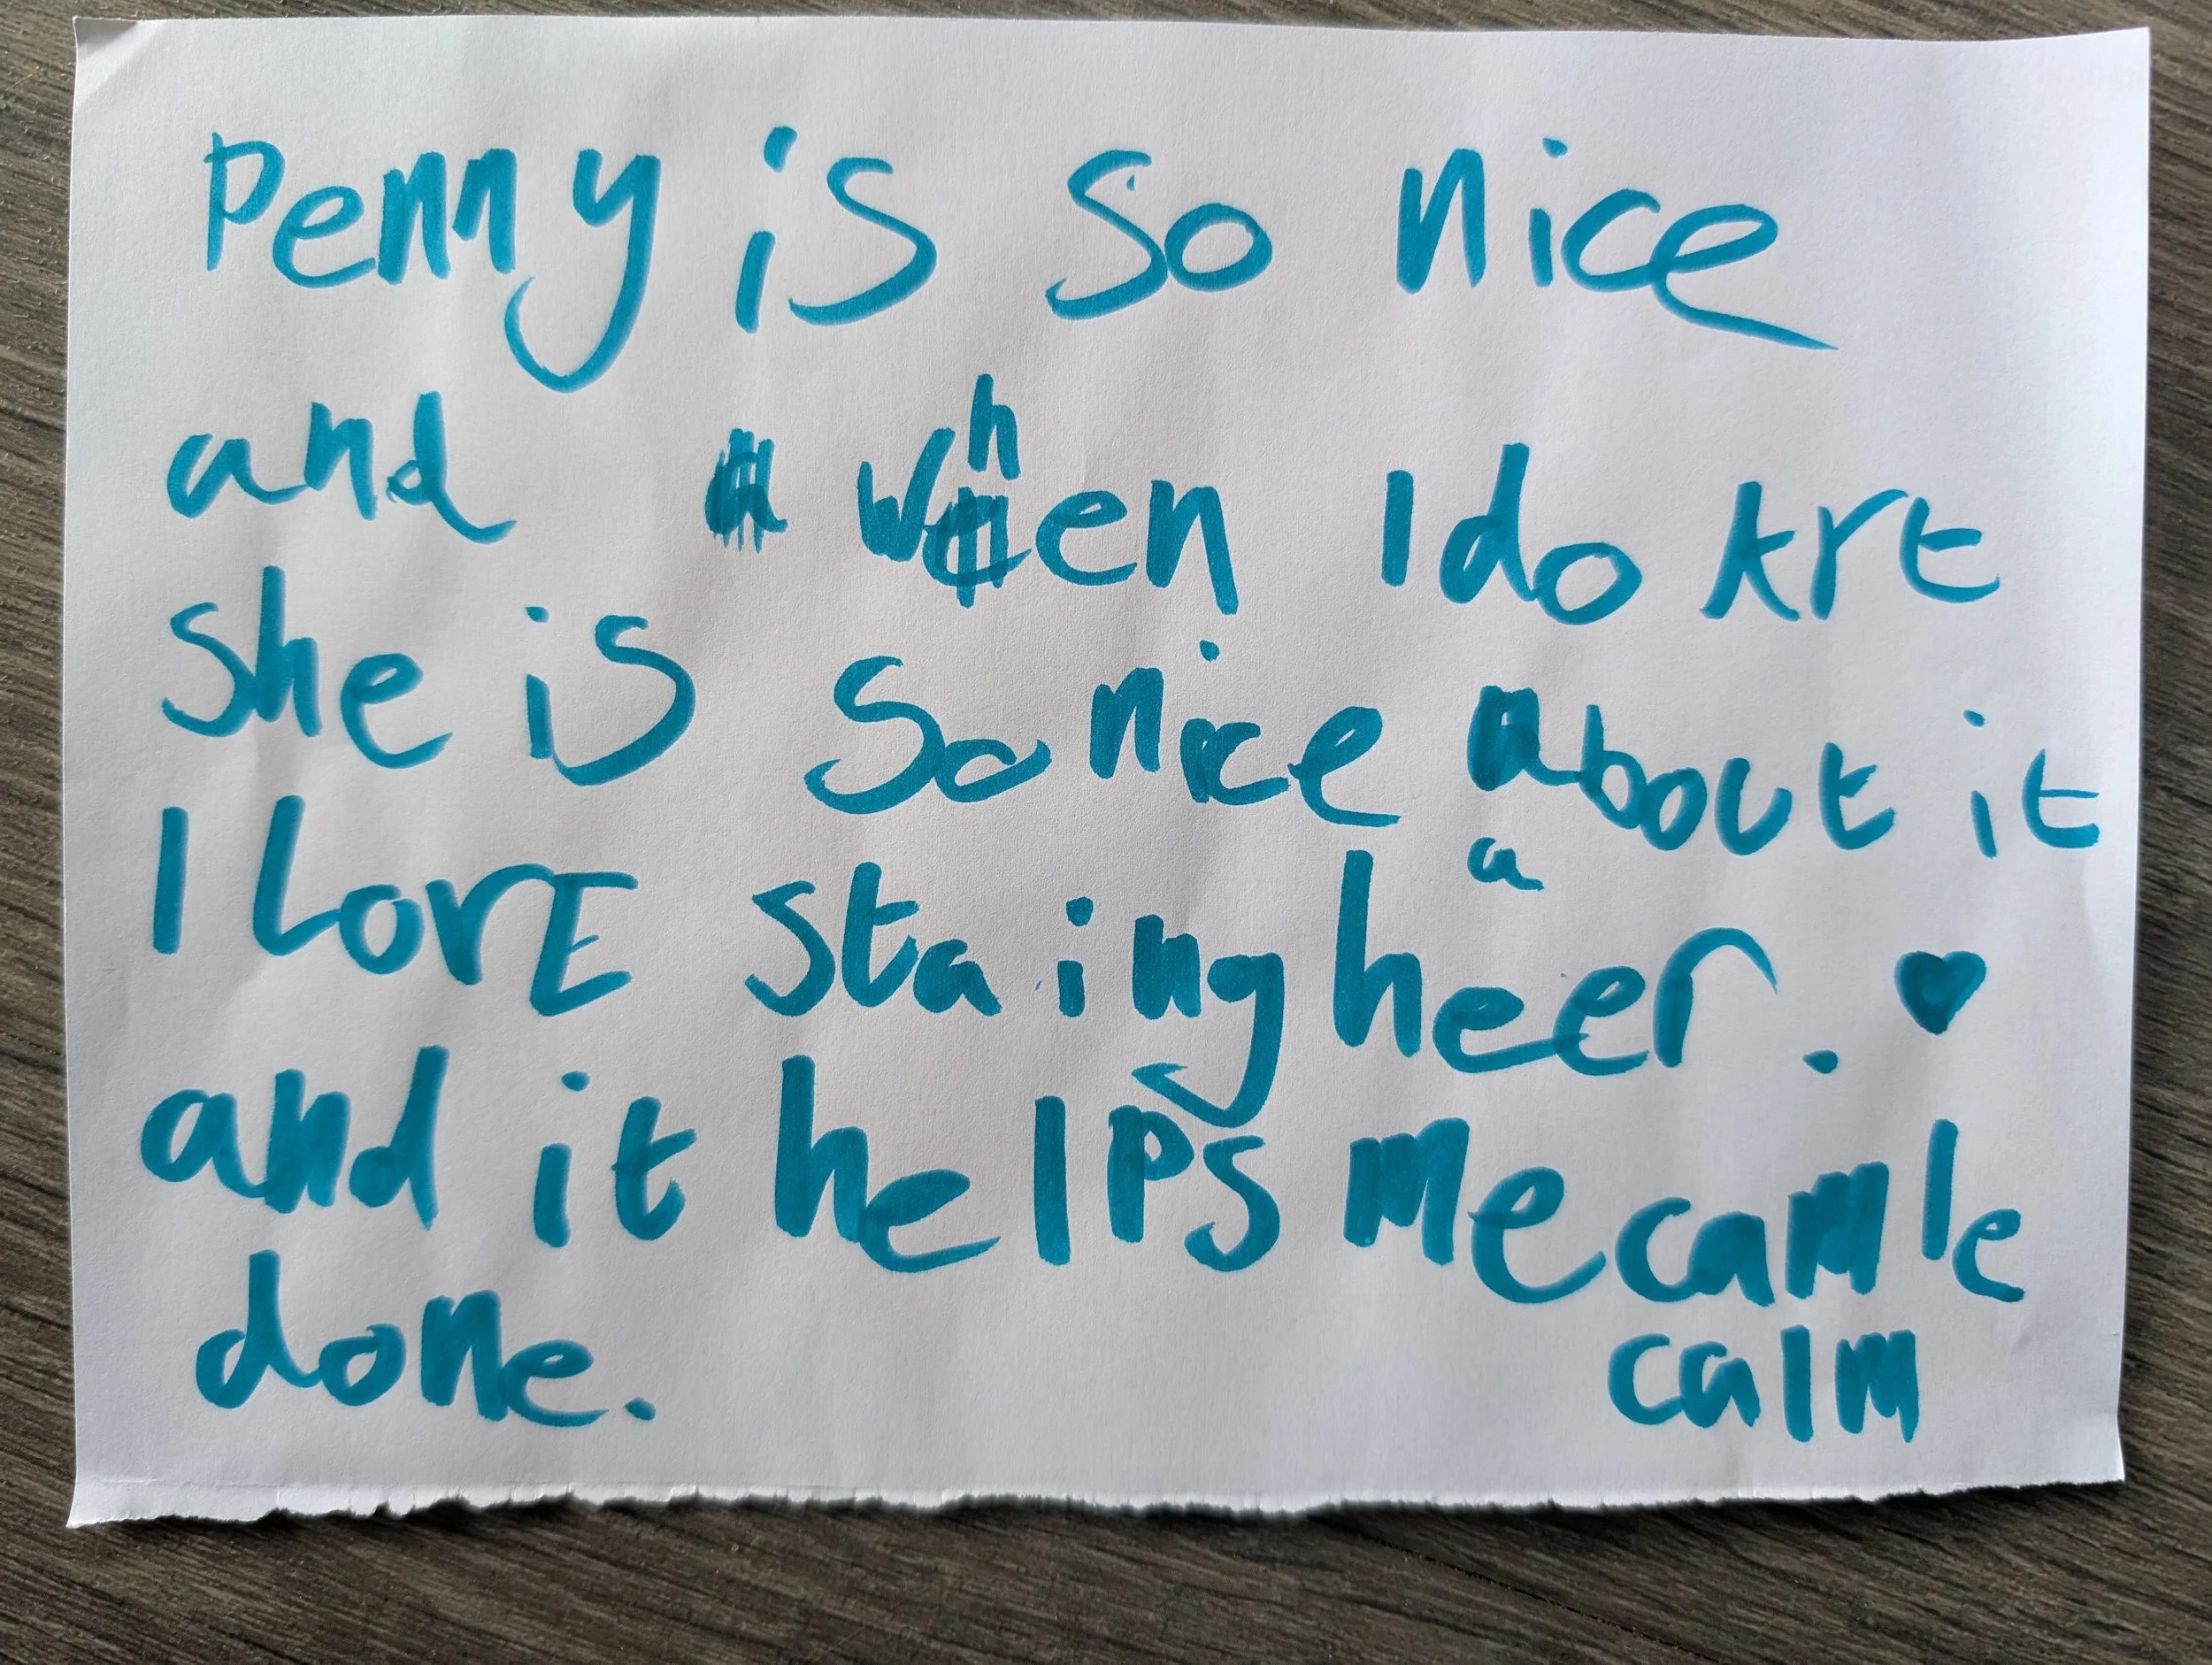 Penny is so nice
and when I do Art
she is so nice about it
a
I LovE staing heer. ♥
and it helps me camle
calm
done.